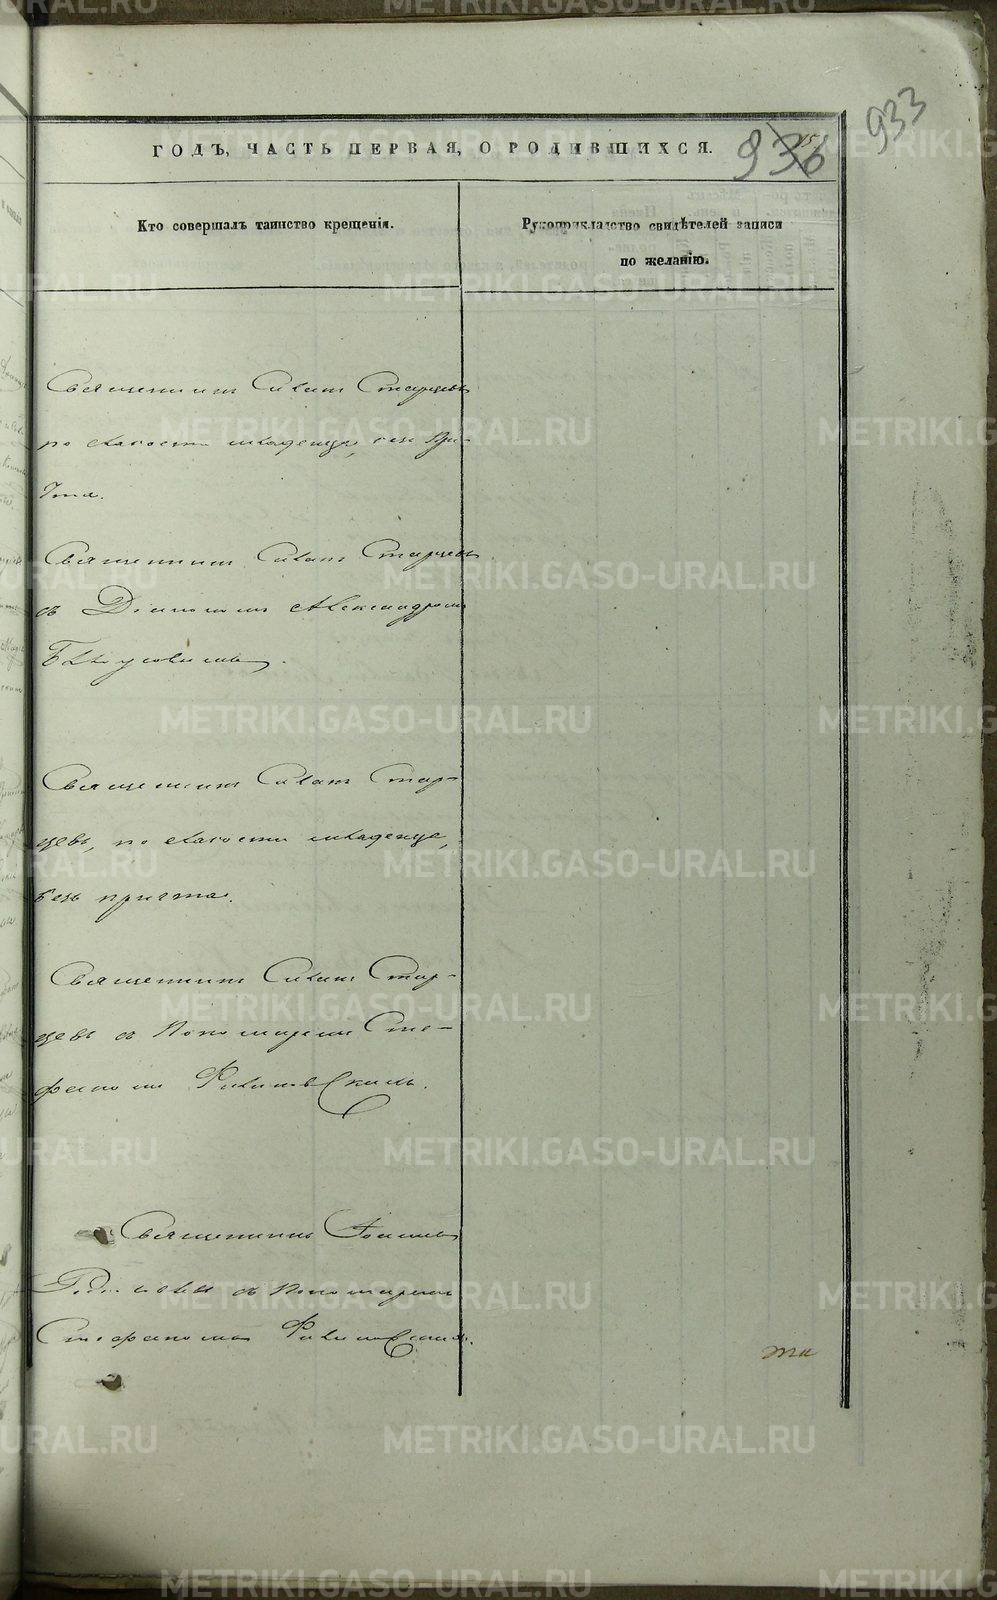 933
ГОДЪ, ЧАСТЬ ПЕРВАЯ, О РОДИВШИХСЯ.
936
Кто совершалъ таинство крещенія.
Рукоприкладство свидѣтелей записи
по желанію.
Священникъ Симонъ Старцевъ
по слабости младенца, безъ при-
чта.
Священникъ Старцевъ
съ Діакономъ Александромъ
Священникъ Стар-
цевъ, по слабости младенца,
безъ причта.
Священникъ Стар-
цевъ съ Пономаремъ Сте-
фаномъ
Священникъ
съ Пономаремъ
Стефаномъ
METRIKI.GASO-URAL.RU